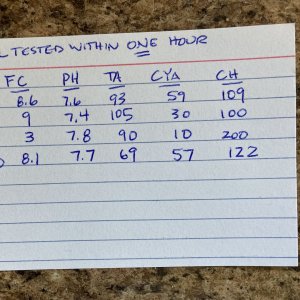 TESTED WITHIN ONE HOUR
FC PH TA CYA CH
8.6 7.6 93 59 109
9 7.4 105 30 100
3 7.8 90 10 200
8.1 7.7 69 57 122